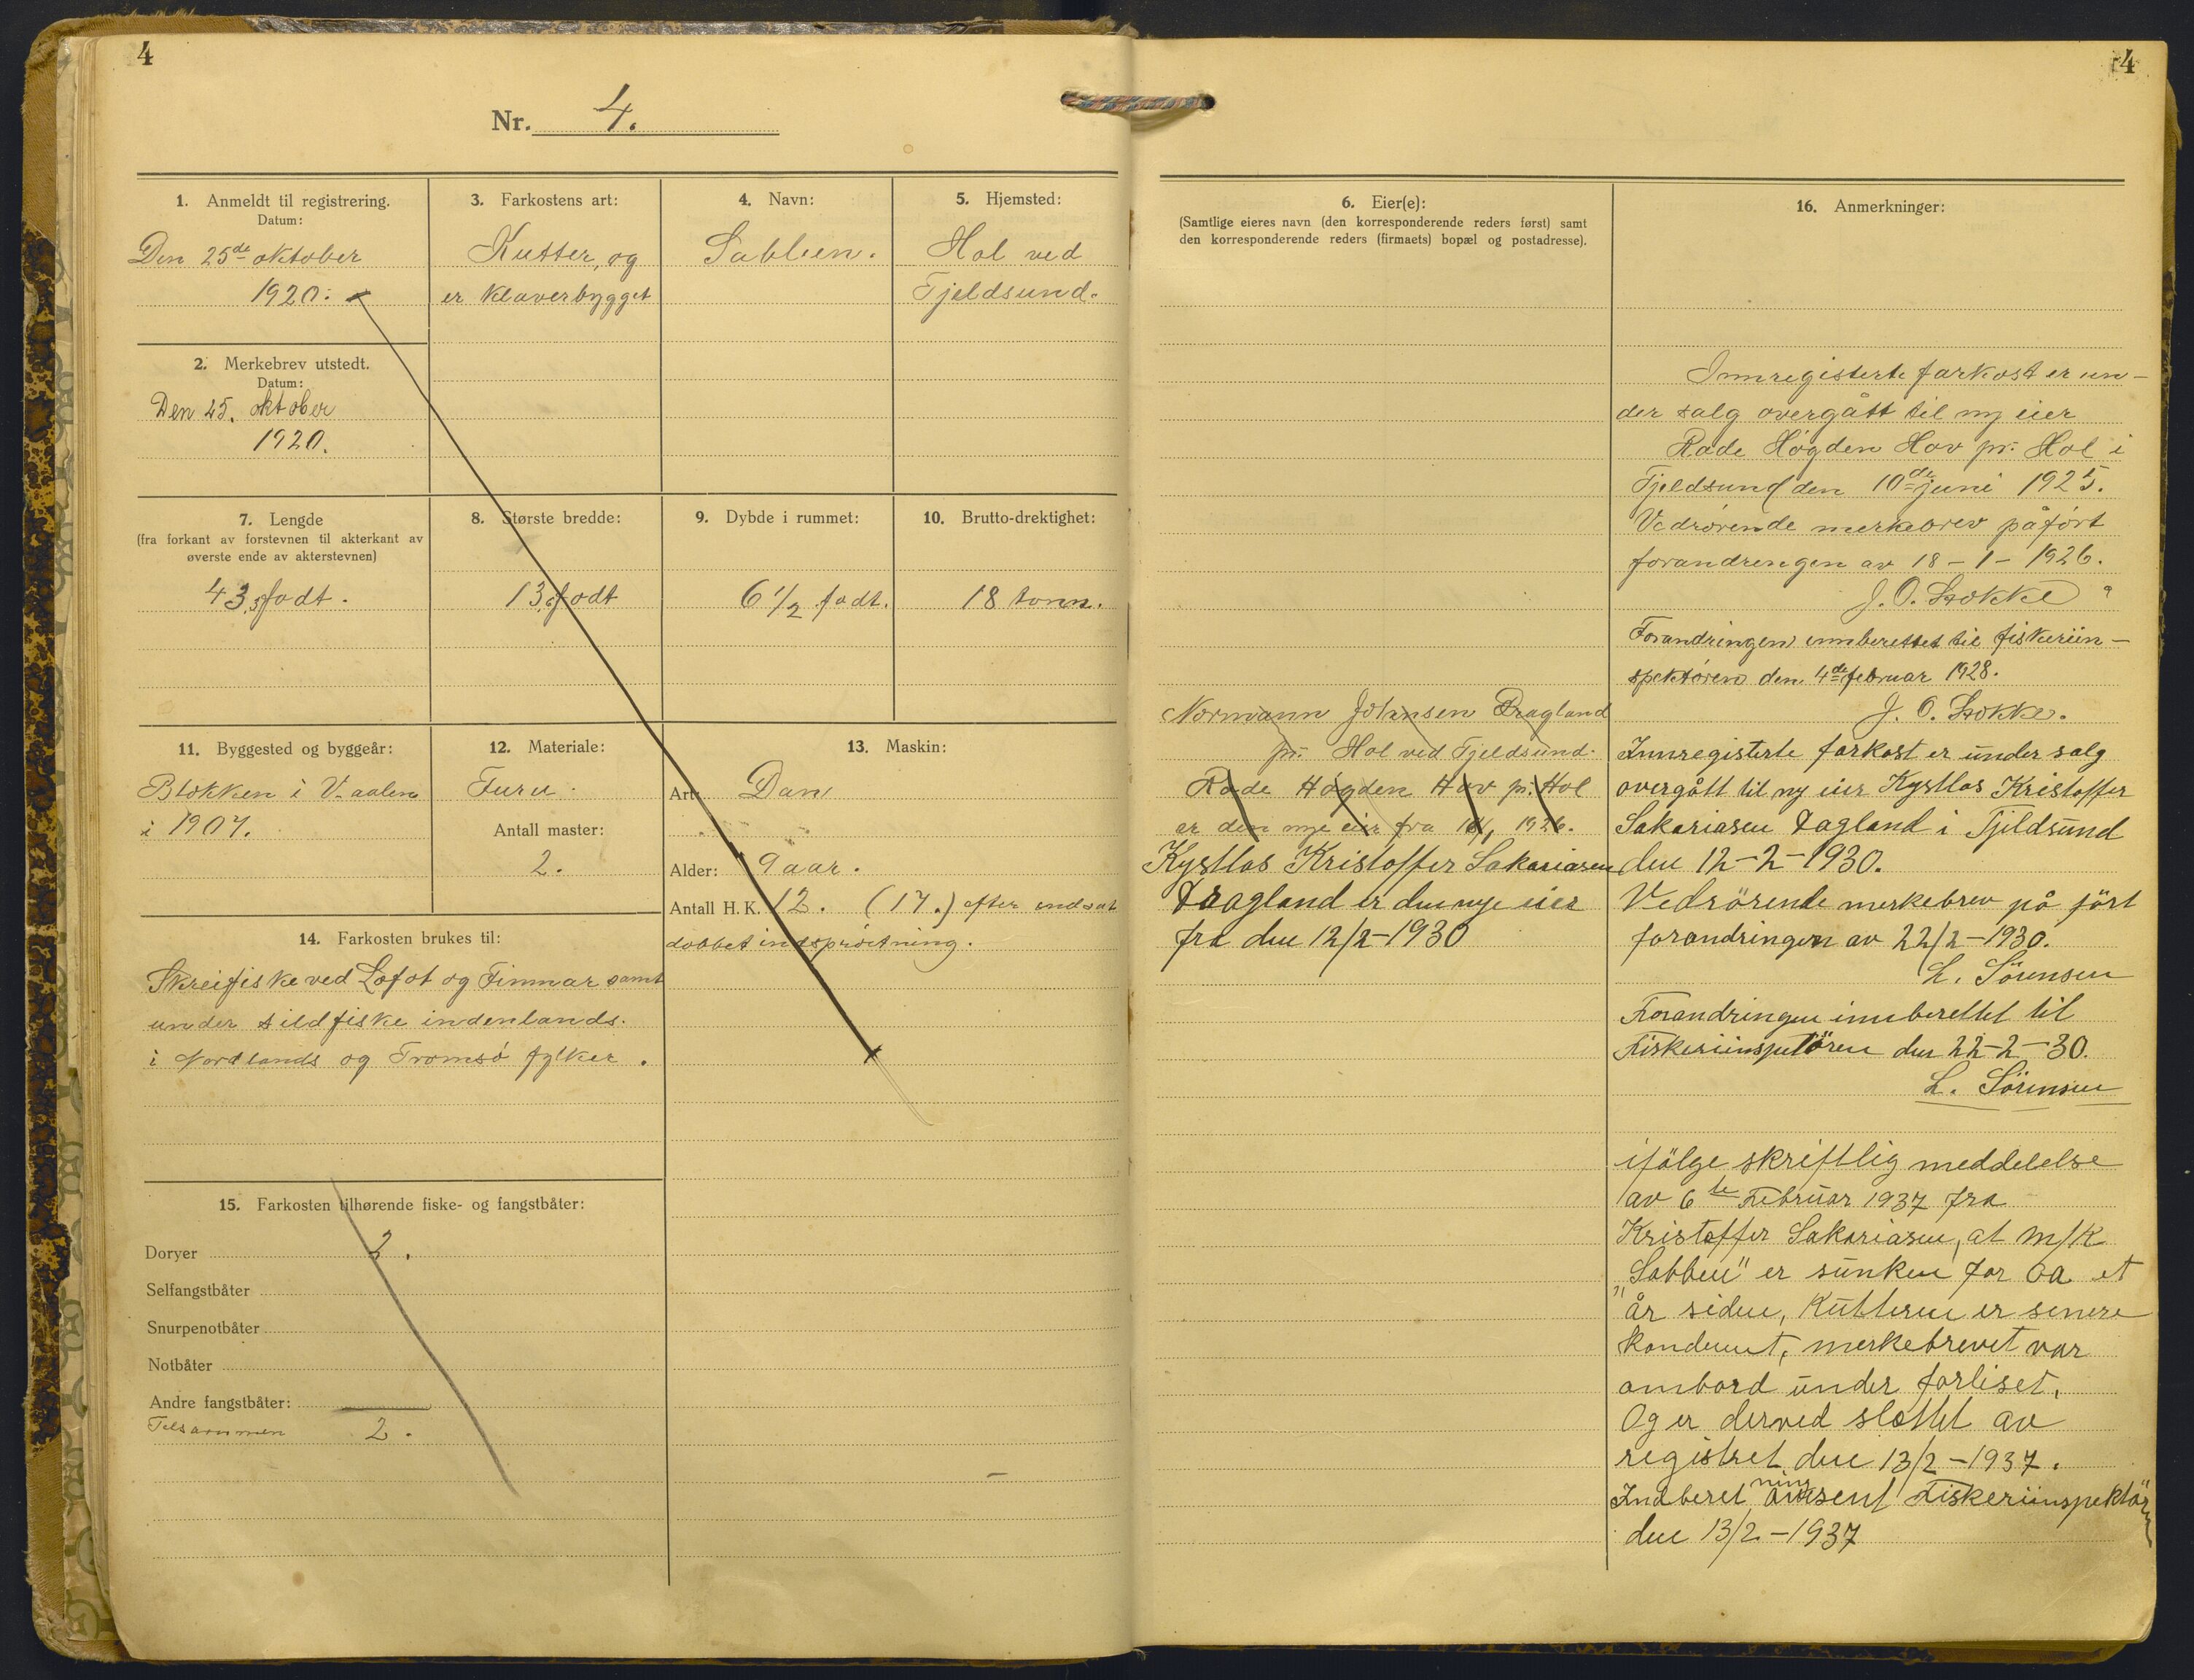 4
Nr. 4.
1. Anmeldt til registrering.
Datum:
Den 25de oktober
1920.
2. Merkebrev utstedt.
Datum:
Den 25. oktober
1920.
3. Farkostens art:
Kutter, og
er klaverbygget
4. Navn:
5. Hjemsted:
Hol ved
Fjeldsund.
7. Lengde
(fra forkant av forstevnen til akterkant av
øverste ende av akterstevnen)
43,5 fodt.
8. Største bredde:
13,6 fodt
9. Dybde i rummet:
6 1/2 fodt.
10. Brutto-drektighet:
18 tonn.
11. Byggested og byggeår:
Blokken i V-aalen
i 1907.
12. Materiale:
Furu.
Antall master:
2.
13. Maskin:
Art: Dan
Alder: 9 aar.
Antall H. K. 12. (17.) efter indsat
dobbet indsprøitning.
14. Farkosten brukes til:
Skreifiske ved Lofot og Finmar samt
under sildfiske indenlands.
i Nordlands og Tromsø fylker.
15. Farkosten tilhørende fiske- og fangstbåter:
Doryer 2.
Selfangstbåter
Snurpenotbåter
Notbåter
Andre fangstbåter:
Tilsammen 2.
4
6. Eier(e):
(Samtlige eieres navn (den korresponderende reders først) samt
den korresponderende reders (firmaets) bopæl og postadresse).
Normann Johnsen Dragland
pr. Hol ved Fjeldsund.
Rode Høgden Hov pr. Hol
er den nye eier fra 1926.
Kristoffer Sakariasen
Dragland er den nye eier
fra den 12/2-1930
16. Anmerkninger:
Innregisterte farkost er un-
der salg overgått til ny eier
Rode Høgden Hov pr. Hol i
Fjeldsund den 10de juni 1925.
Vedrørende merkebrev påført
forandrengen av 18-1-1926.
J. O. Stokke
Forandringen innberettet til fiskeriin-
spektøren den 4de februar 1928.
J. O. Stokke.
Innregisterte farkost er under salg
overgått til ny eier Kristoffer
Sakariasen Dagland i Fjeldsund
den 12-2-1930.
Vedrörende merkebrev på fört
forandringen av 22/2-1930.
L. Sörensen
Forandringen innberettet til
Fiskeriinspektören den 22-2-30.
L. Sörensen
ifölge skriftlig meddelelse
av 6te Februar 1937 fra
Kristoffer Sakariasen, at M/K
"Sobben" er sunken for ca et
år siden, Kutteren er senere
kondemt, merkebrevet var
ombord under forliset,
Og er derved slettet av
registret den 13/2-1937.
Indberetning avsent Fiskeriinspektören
den 13/2-1937